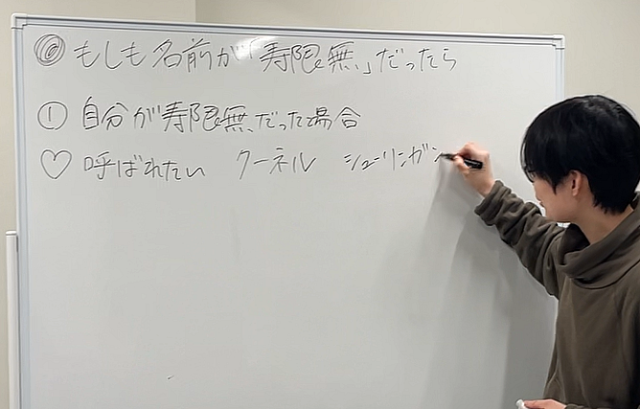 ◎ もしも名前が「寿限無」だったら
① 自分が寿限無だった場合
♡ 呼ばれたい クーネル シューリンガン